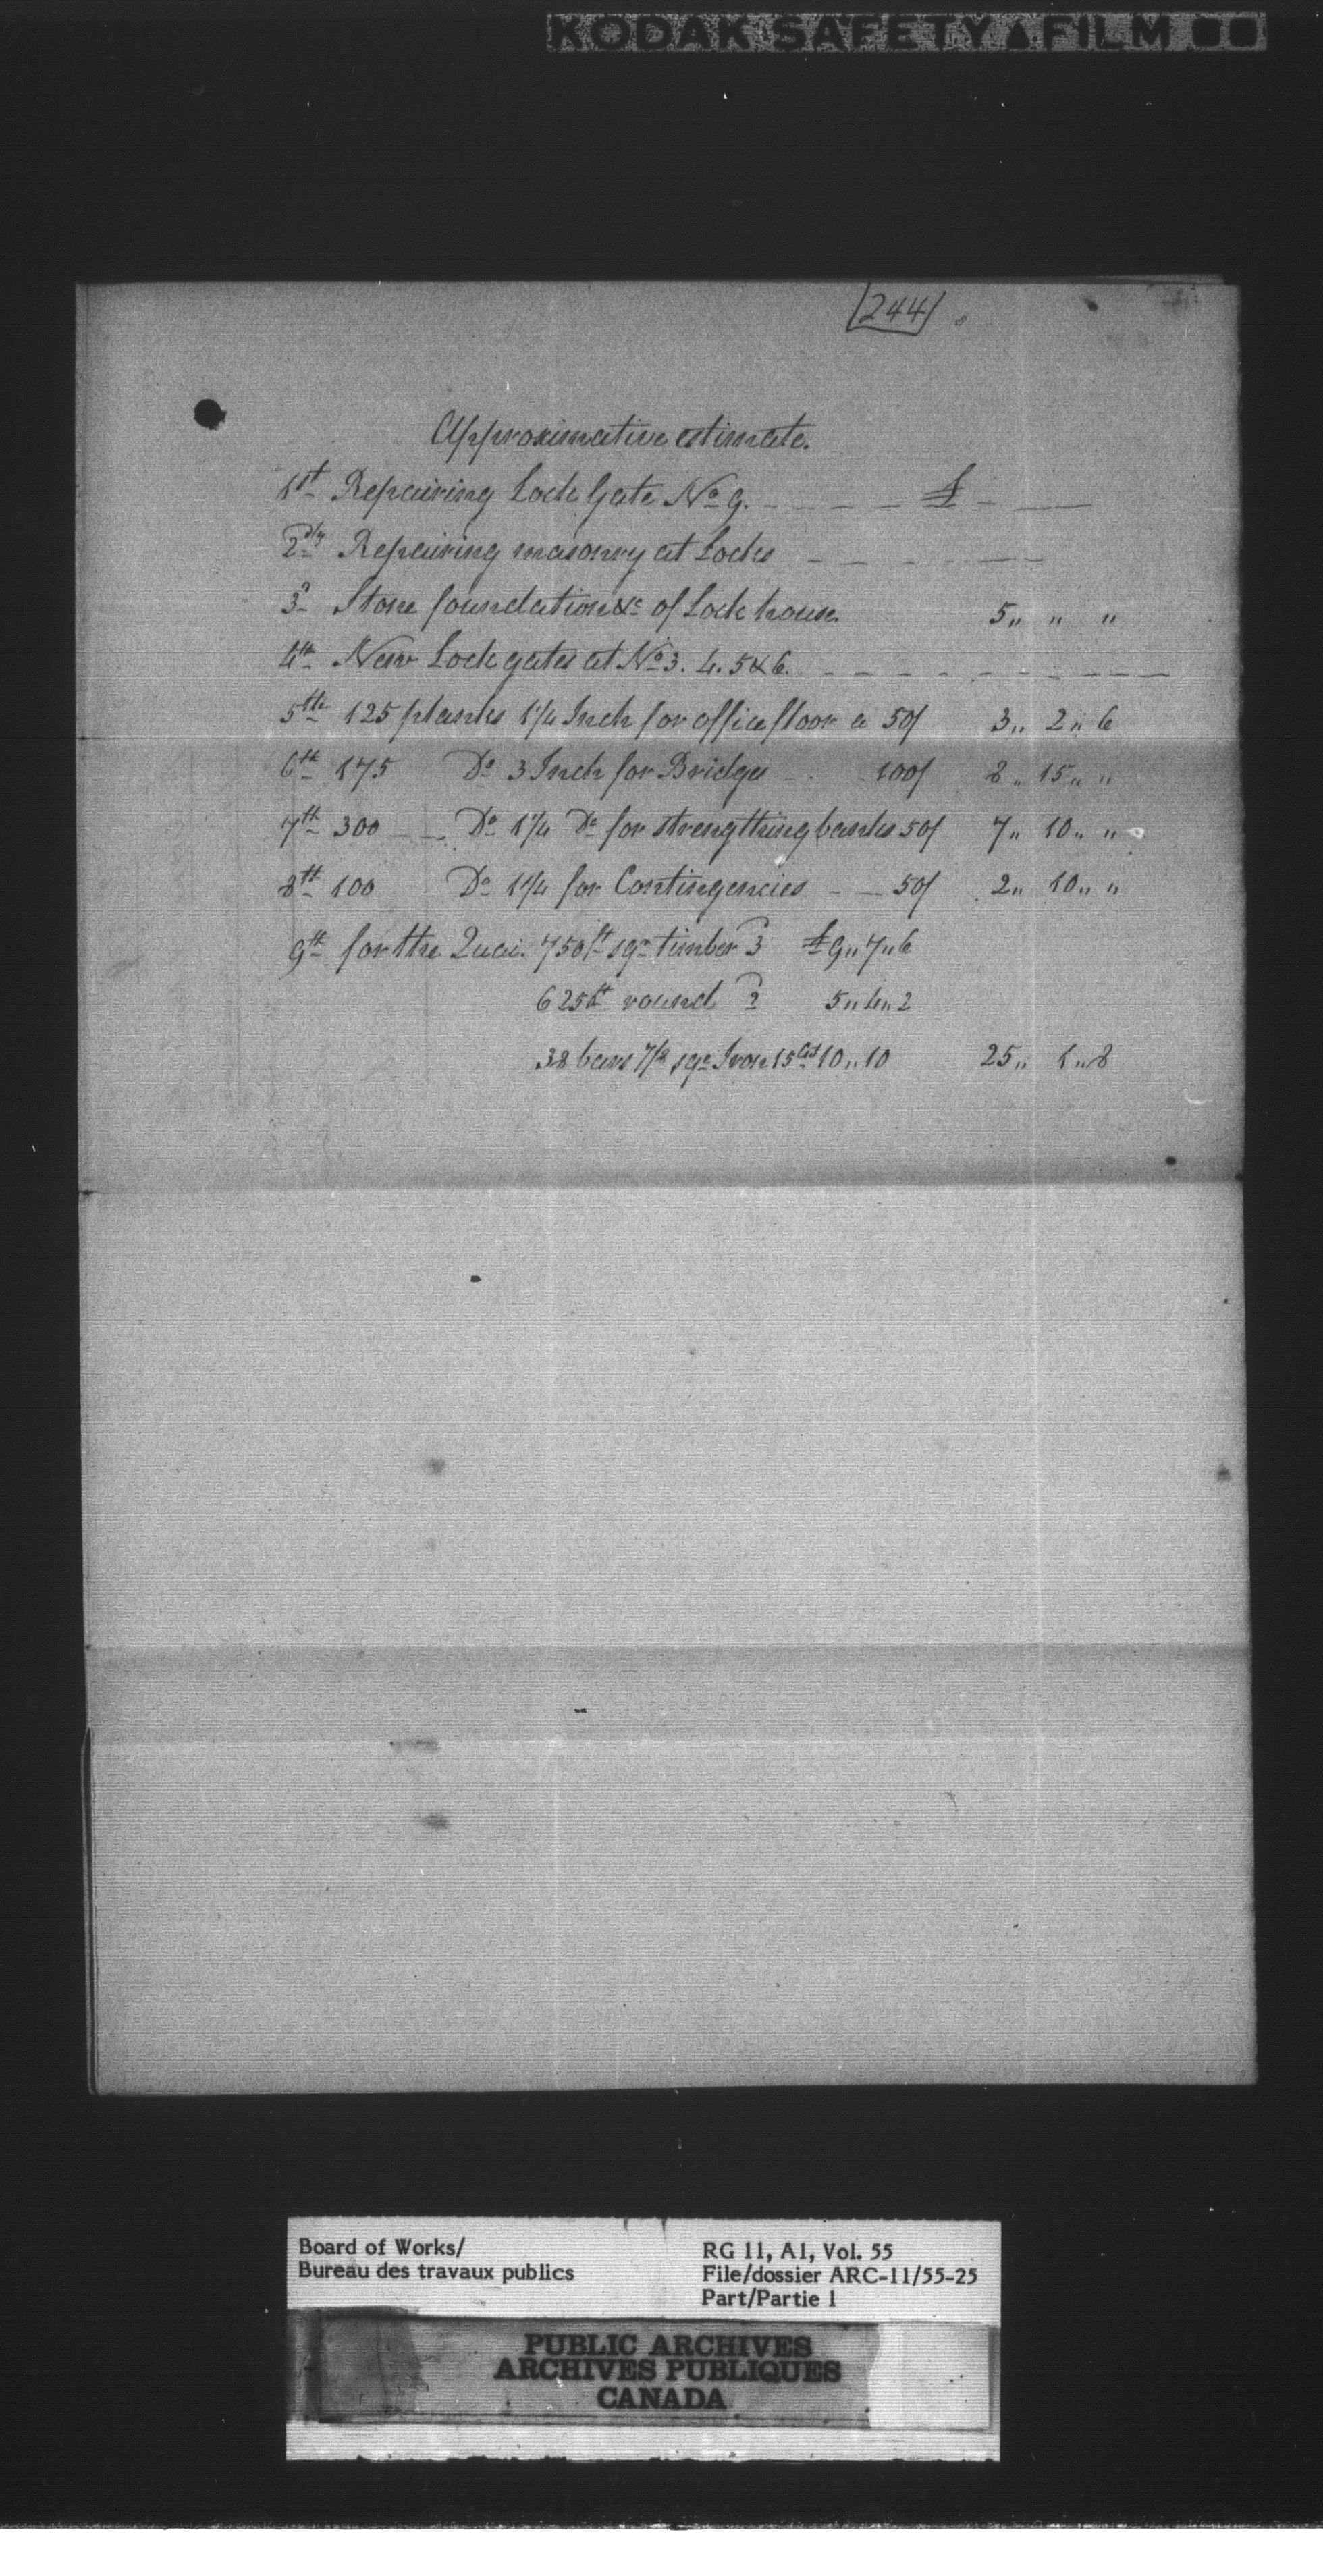 KODAK SAFETY FILM
244
Approximative estimate.
1st Repairing Lock Gate No 9. £
2dly Repairing masonry at Locks
3d Stone foundation &c of Lock house. 5 " " "
4th New Lock gates at No 3. 4. 5 & 6.
5th 125 planks 1 1/4 Inch for office floor a 50/ 3 " 2 " 6
6th 175 Do 3 Inch for Bridges 100/ 8 " 15 " "
7th 300 Do 1 1/4 Do for strengthing banks 50/ 7 " 10 " "
8th 100 Do 1 1/4 for Contingencies 50/ 2 " 10 " "
9th for the Quai. 750 ft sqr timber 3 £9 " 7 " 6
625 ft round 2 5 " 4 " 2
38 bars 7/8 sqr Iron 15 10 " 10 25 " 1 " 8
Board of Works/
Bureau des travaux publics
RG 11, A1, Vol. 55
File/dossier ARC-11/55-25
Part/Partie 1
PUBLIC ARCHIVES
ARCHIVES PUBLIQUES
CANADA